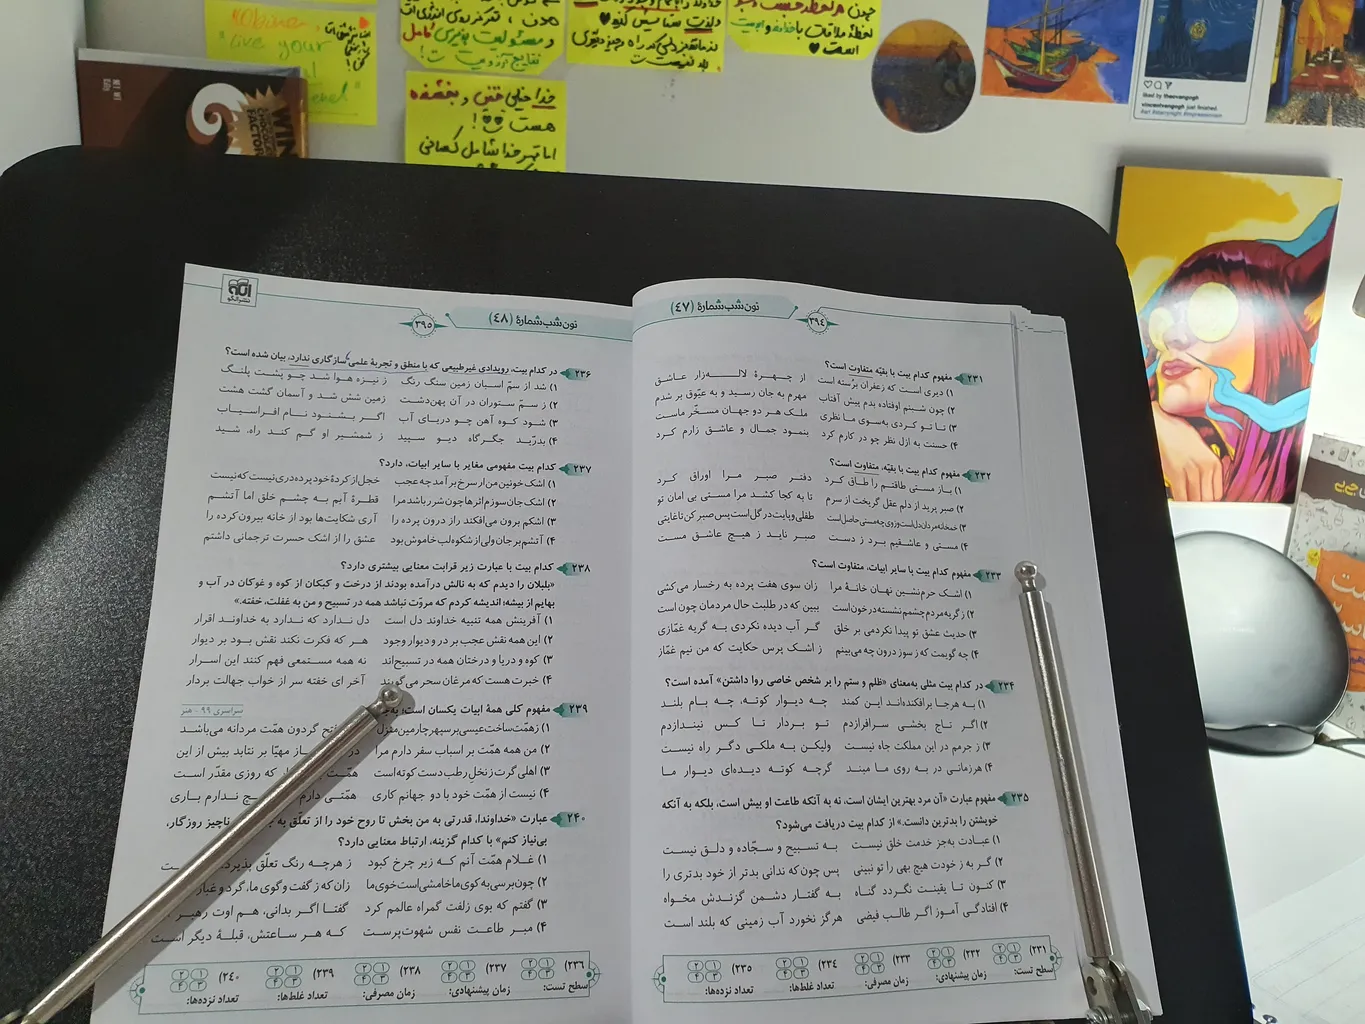 نون شب شمارهٔ (۴۷)
۳۹۴
۲۳۱ مفهوم کدام بیت با بقیّه متفاوت است؟
۱) دیری است که زعفران برُسته است از چهرهٔ لاله‌زار عاشق
۲) چون شبنم اوفتاده بدم پیش آفتاب مهرم به جان رسید و به عیّوق بر شدم
۳) تا تو کردی به‌سوی ما نظری ملک هر دو جهان مسخّر ماست
۴) حسنت به ازل نظر چو در کارم کرد بنمود جمال و عاشق زارم کرد
۲۳۲ مفهوم کدام بیت با بقیّه، متفاوت است؟
۱) باز مستی طاقتم را طاق کرد دفتر صبر مرا اوراق کرد
۲) صبر پرید از دلم عقل گریخت از سرم تا به کجا کشد مرا مستی بی امان تو
۳) خمخانه مردان دل است وز وی چه مستی حاصل است طفلی و پایت در گل است پس صبر کن تا غایتی
۴) مستی و عاشقیم برد ز دست صبر ناید ز هیچ عاشق مست
۲۳۳ مفهوم کدام بیت با سایر ابیات، متفاوت است؟
۱) اشک حرم‌نشین نهان خانهٔ مرا زان سوی هفت پرده به رخسار می‌کشی
۲) ز گریه مردم چشمم نشسته در خون است ببین که در طلبت حال مردمان چون است
۳) حدیث عشق تو پیدا نکردمی بر خلق گر آب دیده نکردی به گریه غمّازی
۴) چه گویمت که ز سوز درون چه می‌بینم ز اشک پرس حکایت که من نیم غمّاز
۲۳۴ در کدام بیت مثلی به‌معنای «ظلم و ستم را بر شخص خاصی روا داشتن» آمده است؟
۱) به هرجا برافکنده‌اند این کمند چه دیوار کوته، چه بام بلند
۲) اگر تاج بخشی سرافرازدم تو بردار تا کس نیندازدم
۳) ز جرمم در این مملکت جاه نیست ولیکن به ملکی دگر راه نیست
۴) هرزمانی در به روی ما مبند گرچه کوته دیده‌ای دیوار ما
۲۳۵ مفهوم عبارت «آن مرد بهترین ایشان است، نه به آنکه طاعت او بیش است، بلکه به آنکه
خویشتن را بدترین دانست.» از کدام بیت دریافت می‌شود؟
۱) عبادت به‌جز خدمت خلق نیست به تسبیح و سجّاده و دلق نیست
۲) گر به ز خودت هیچ بهی را تو نبینی پس چون که ندانی بدتر از خود بدتری را
۳) کنون تا یقینت نگردد گناه به گفتار دشمن گزندش مخواه
۴) افتادگی آموز اگر طالب فیضی هرگز نخورد آب زمینی که بلند است
۲۳۱) ۱ ۲ ۳ ۴ ۲۳۲) ۱ ۲ ۳ ۴ ۲۳۳) ۱ ۲ ۳ ۴ ۲۳۴) ۱ ۲ ۳ ۴ ۲۳۵) ۱ ۲ ۳ ۴
سطح تست: زمان پیشنهادی: زمان مصرفی: تعداد غلط‌ها: تعداد نزده‌ها:
نون شب شمارهٔ (۴۸)
۳۹۵
نشر الگو
۲۳۶ در کدام بیت، رویدادی غیرطبیعی که با منطق و تجربهٔ علمی سازگاری ندارد، بیان شده است؟
۱) شد از سمّ اسبان زمین سنگ رنگ ز نیزه هوا شد چو پشت پلنگ
۲) ز سمّ ستوران در آن پهن‌دشت زمین شش شد و آسمان گشت هشت
۳) شود کوه آهن چو دریای آب اگر بشنود نام افراسیاب
۴) بدرّید جگرگاه دیو سپید ز شمشیر او گم کند راه، شید
۲۳۷ کدام بیت مفهومی مغایر با سایر ابیات، دارد؟
۱) اشک خونین من ار سرخ برآمد چه عجب خجل از کردهٔ خود پرده دری نیست که نیست
۲) اشک جان سوزم اثرها چون شرر باشد مرا قطرهٔ آبم به چشم خلق اما آتشم
۳) اشکم برون می‌افکند راز درون پرده را آری شکایت‌ها بود از خانه بیرون کرده را
۴) آتشم بر جان ولی از شکوه لب خاموش بود عشق را از اشک حسرت ترجمانی داشتم
۲۳۸ کدام بیت با عبارت زیر قرابت معنایی بیشتری دارد؟
«بلبلان را دیدم که به نالش درآمده بودند از درخت و کبکان از کوه و غوکان در آب و
بهایم از بیشه؛ اندیشه کردم که مروّت نباشد همه در تسبیح و من به غفلت، خفته.»
۱) آفرینش همه تنبیه خداوند دل است دل ندارد که ندارد به خداوند اقرار
۲) این همه نقش عجب بر در و دیوار وجود هر که فکرت نکند نقش بود بر دیوار
۳) کوه و دریا و درختان همه در تسبیح‌اند نه همه مستمعی فهم کنند این اسرار
۴) خبرت هست که مرغان سحر می‌گویند آخر ای خفته سر از خواب جهالت بردار
۲۳۹ مفهوم کلی همهٔ ابیات یکسان است؛ به
سراسری ۹۹ - هنر
۱) ز همّت ساخت عیسی بر سپهر چارمین منزل گردون همّت مردانه می‌باشد
۲) من همه همّت بر اسباب سفر دارم مرا مهیّا بر نتابد بیش از این
۳) اهلی گرت ز نخل رطب دست کوته است همّت که روزی مقدّر است
۴) نیست از همّت خود با دو جهانم کاری همّتی دارم ندارم باری
۲۴۰ عبارت «خداوندا، قدرتی به من بخش تا روح خود را از تعلّق به ناچیز روزگار،
بی‌نیاز کنم» با کدام گزینه، ارتباط معنایی دارد؟
۱) غلام همّت آنم که زیر چرخ کبود ز هرچه رنگ تعلّق پذیرد
۲) چون برسی به کوی ما خامشی است خوی ما زان که ز گفت و گوی ما، گرد و غبار
۳) گفتم که بوی زلفت گمراه عالمم کرد گفتا اگر بدانی، هم اوت رهبر
۴) مبر طاعت نفس شهوت‌پرست که هر ساعتش، قبلهٔ دیگر است
۲۳۶) ۱ ۲ ۳ ۴ ۲۳۷) ۱ ۲ ۳ ۴ ۲۳۸) ۱ ۲ ۳ ۴ ۲۳۹) ۱ ۲ ۳ ۴ ۲۴۰) ۱ ۲ ۳ ۴
سطح تست: زمان پیشنهادی: زمان مصرفی: تعداد غلط‌ها: تعداد نزده‌ها:
"live your
خدا خیلی و بخشنده
هست !
اما قهر خدا شامل کسانی
liked by theovangogh
vincentvangogh just finished